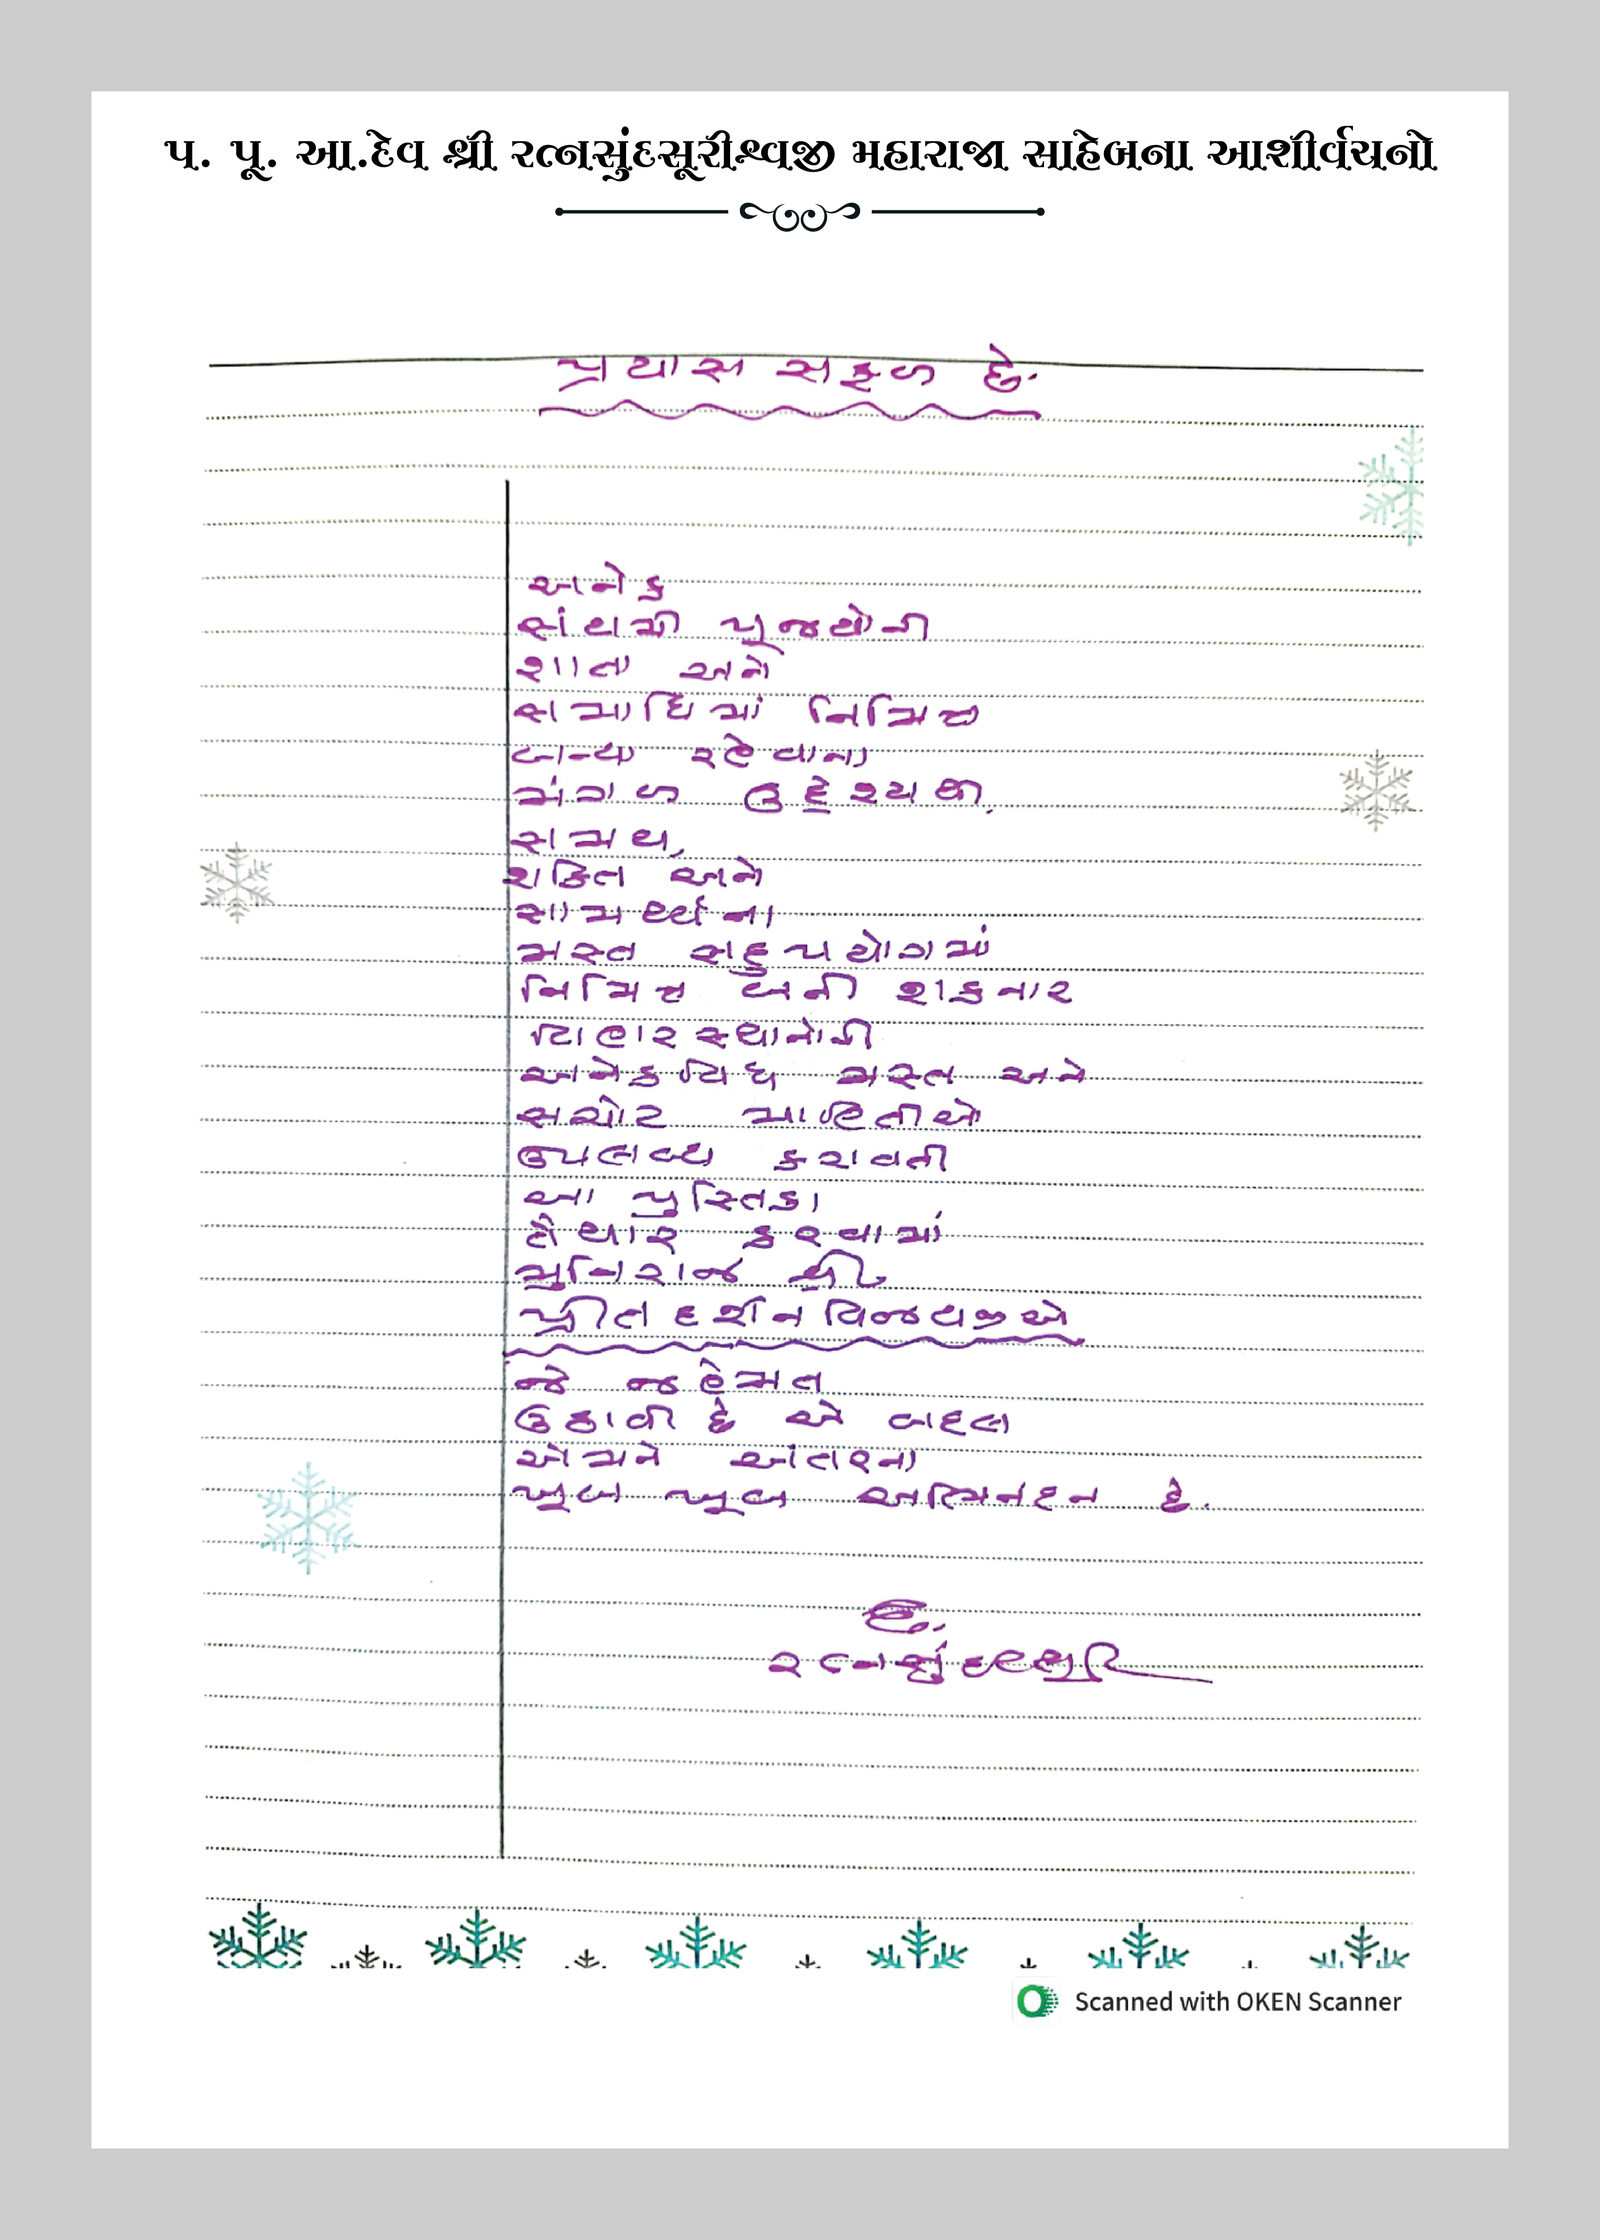 પ. પૂ. આ.દેવ શ્રી રત્નસુંદસૂરીશ્વજી મહારાજા સાહેબના આશીર્વચનો
પ્રયાસ સફળ છે.
અનેક
સંયમી પૂજ્યોની
શાતા અને
સમાધિમાં નિમિત્ત
બન્યા રહેવાના
મંગળ ઉદ્દેશ્યથી,
સમય,
શક્તિ અને
સામર્થ્યના
મસ્ત સદુપયોગમાં
નિમિત્ત બની શકનાર
વિહારસ્થાનોની
અનેકવિધ મસ્ત અને
સચોટ માહિતીઓ
ઉપલબ્ધ કરાવતી
આ પુસ્તિકા
તૈયાર કરવામાં
મુનિરાજ શ્રી
પ્રીતદર્શનવિજયજીએ
જે જહેમત
ઉઠાવી છે એ બદલ
એમને અંતરના
ખૂબ ખૂબ અભિનંદન છે.
દ.
રત્નસુંદરસૂરિ
Scanned with OKEN Scanner